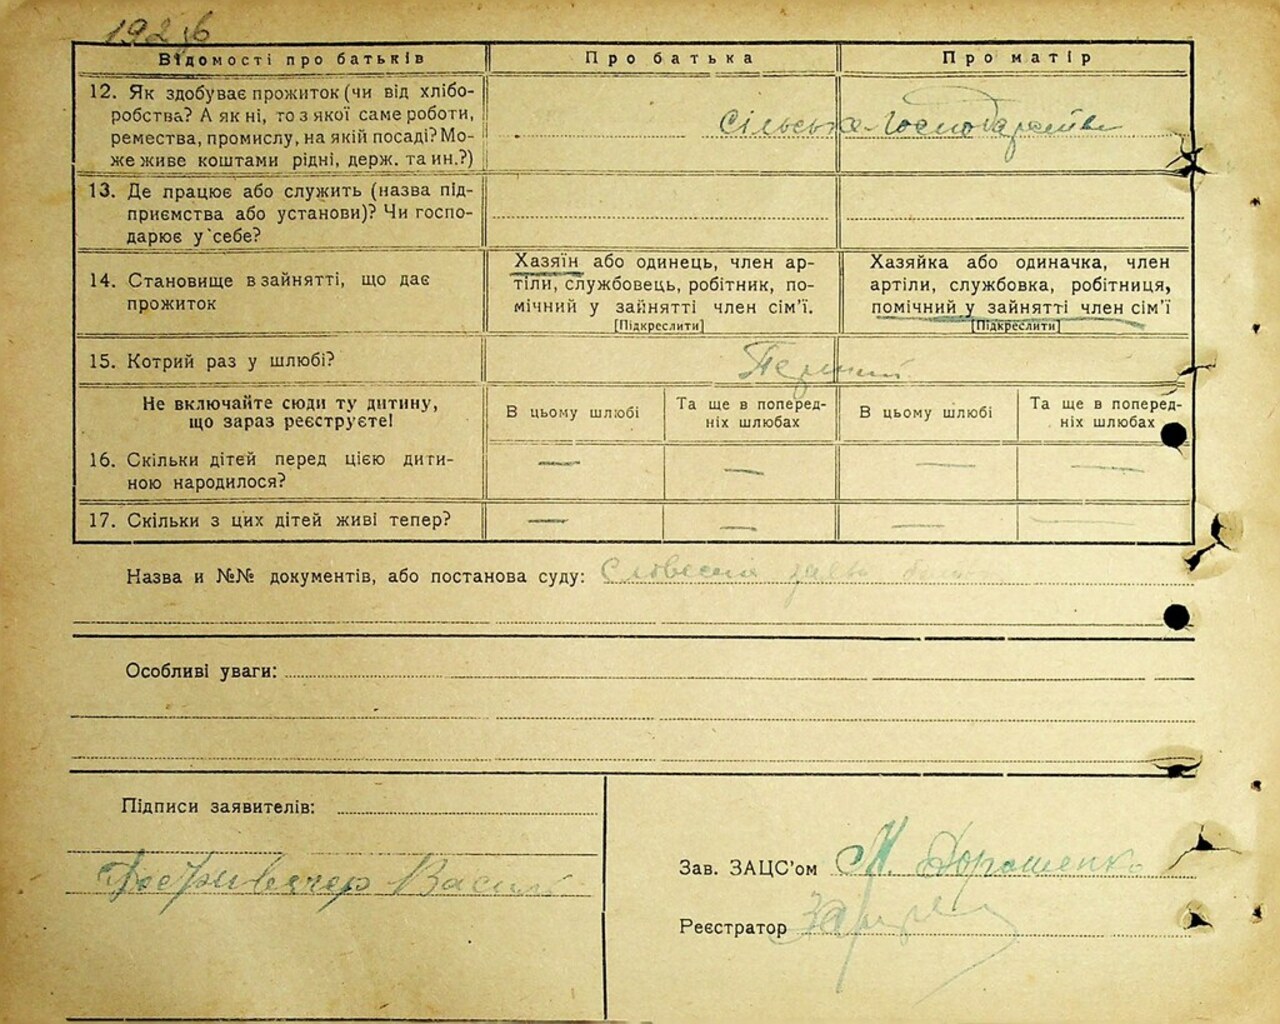 Відомості про батьків Про батька Про матір
12. Як здобуває прожиток (чи від хлібо-
робства? А як ні, то з якої саме роботи,
ремества, промислу, на якій посаді? Мо-
же живе коштами рідні, держ. та ин.?)
Сільське-Господарство
13. Де працює або служить (назва під-
приємства або установи)? Чи госпо-
дарює у себе?
14. Становище в зайнятті, що дає
прожиток
Хазяїн або одинець, член ар-
тілі, службовець, робітник, по-
мічний у зайнятті член сім'ї.
[Підкреслити]
Хазяйка або одиначка, член
артіли, службовка, робітниця,
помічний у зайнятті член сім'ї
[Підкреслити]
15. Котрий раз у шлюбі?
Перший
Не включайте сюди ту дитину,
що зараз реєструєте!
В цьому шлюбі
Та ще в поперед-
ніх шлюбах
В цьому шлюбі
Та ще в поперед-
ніх шлюбах
16. Скільки дітей перед цією дити-
ною народилося?
— — — —
17. Скільки з цих дітей живі тепер?
— — — —
Назва и №№ документів, або постанова суду: Словесна
Особливі уваги:
Підписи заявителів:
Василь
Зав. ЗАЦС'ом М. Дорошенко
Реєстратор